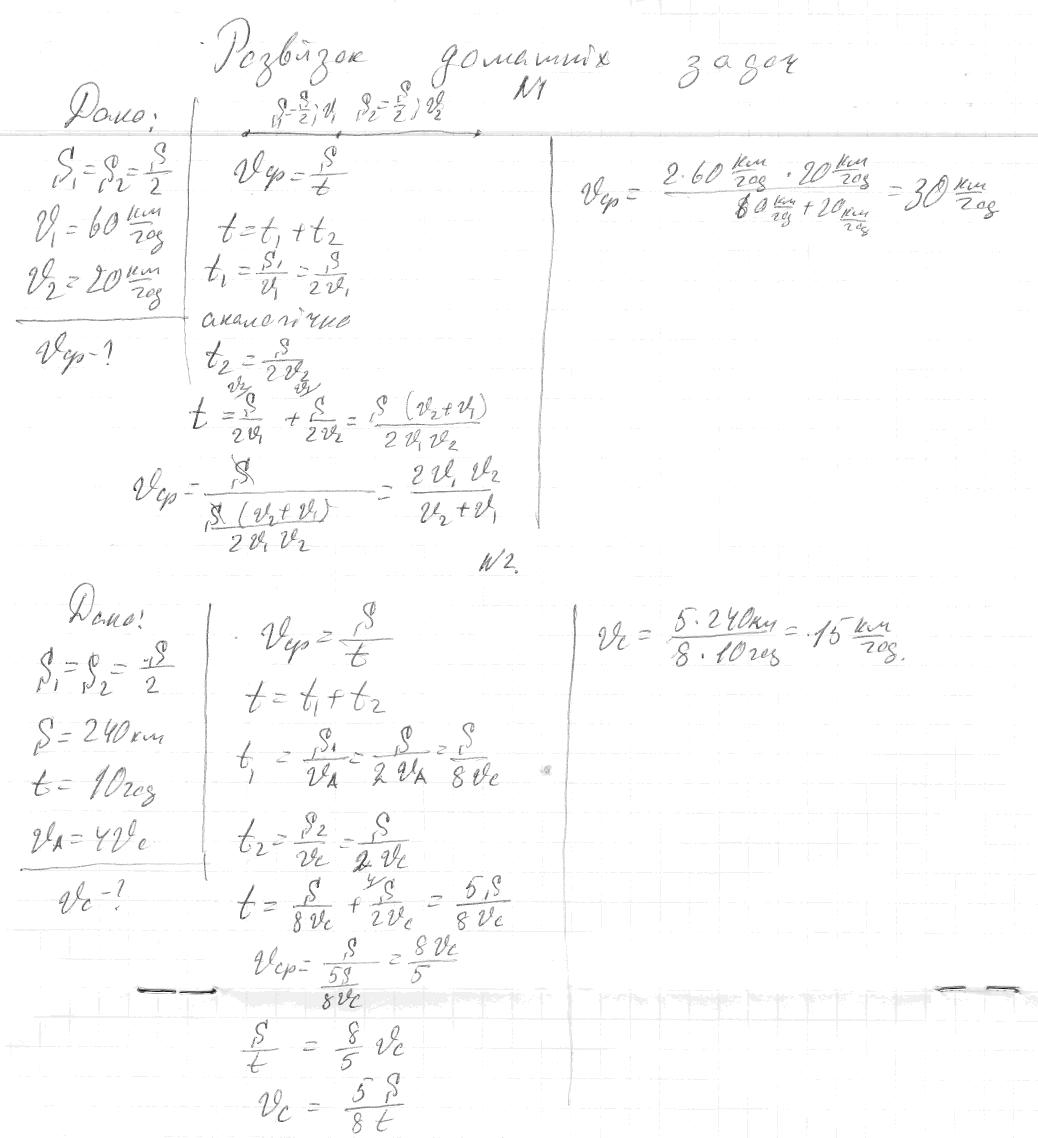 Розв'язок домашніх задач
№1
Дано:
S₁=S₂=S/2
v₁=60 км/год
v₂=20 км/год
vср-?
S₁=S/2; v₁ S₂=S/2; v₂
vср=S/t
t=t₁+t₂
t₁=S₁/v₁=S/2v₁
аналогічно
t₂=S/2v₂
t=S/2v₁ + S/2v₂ = S(v₂+v₁)/2v₁v₂
vср=S/(S(v₂+v₁)/2v₁v₂) = 2v₁v₂/(v₂+v₁)
vср= (2·60 км/год · 20 км/год)/(60 км/год + 20 км/год) = 30 км/год
№2.
Дано:
S₁=S₂=S/2
S=240км
t=10год
vA=4vc
vc-?
vср=S/t
t=t₁+t₂
t₁ = S₁/vA = S/2vA = S/8vc
t₂=S₂/vc=S/2vc
t= S/8vc + S/2vc = 5S/8vc
vср= S/(5S/8vc) = 8vc/5
S/t = 8/5 vc
vc = 5S/8t
vc = 5·240км/8·10год = 15 км/год.